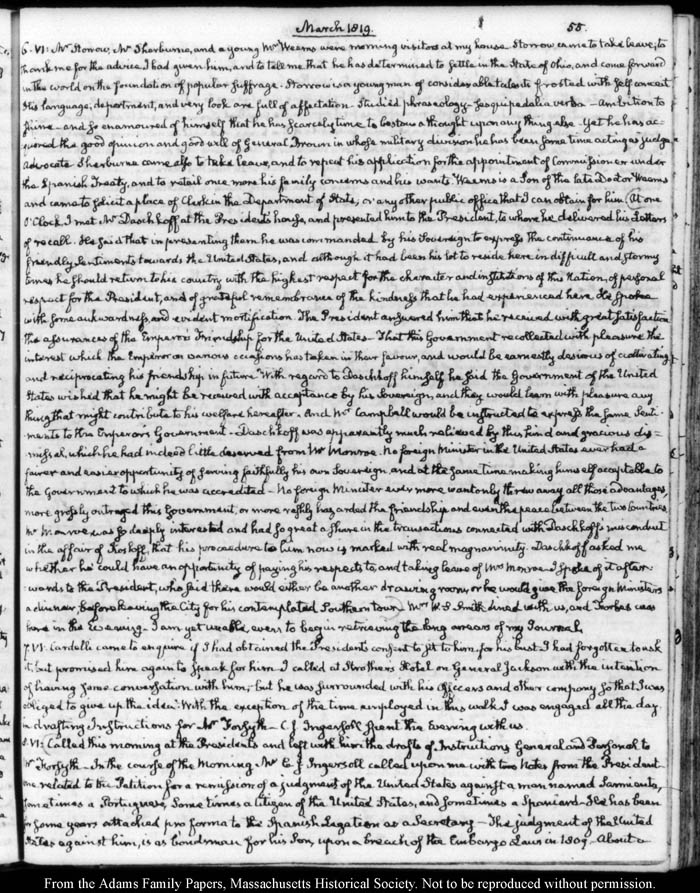 March 1819.
55.
6. VI: Mr Storrow, Mr Sherburne, and a young Mr Weems were morning visitors at my house. Storrow came to take leave; to
thank me for the advice I had given him, and to tell me that he has determined to settle in the State of Ohio, and come forward
in the world on the foundation of popular suffrage. Storrow is a young man of considerable talents frosted with self conceit
His language, deportment, and very look are full of affectation. Studied phraseology – sesquipedalia verba – Ambition to
shine – and so enamoured of himself that he has scarcely time to bestow a thought upon any thing else. Yet he has ac-
quired the good opinion and good will of General Brown in whose military division he has been some time acting as judge
advocate. Sherburne came also to take leave, and to repeat his application for the appointment of Commissioner under
the Spanish Treaty, and to retail once more his family concerns and his wants. Weems is a Son of the late Doctor Weems
and came to solicit a place of Clerk in the Department of State, or any other public office that I can obtain for him. At one
O'Clock I met Mr Daschkoff at the President's house, and presented him to the President, to whom he delivered his Letters
of recall. He said that in presenting them he was commanded by his Sovereign to express the continuance of his
friendly sentiments towards the United States, and although it had been his lot to reside here in difficult and stormy
times he should return to his country with the highest respect for the character and institutions of this Nation, of personal
respect for the President, and of grateful remembrance of the kindness that he had experienced here. He spoke
with some awkwardness, and evident mortification. The President answered him that he received with great satisfaction
the assurances of the Emperor's Friendship for the United States – That this Government recollected with pleasure the
interest which the Emperor on various occasions has taken in their favour, and would be earnestly desirous of cultivating
and reciprocating his friendship in future. With regard to Daschkoff himself he said the Government of the United
States wished that he might be received with acceptance by his Sovereign, and they would learn with pleasure any
thing that might contribute to his welfare hereafter. And Mr Campbell would be instructed to express the same senti-
ments to the Emperor's Government. Daschkoff was apparently much relieved by this kind and gracious dis-
missal, which he had indeed little deserved from Mr Monroe. No foreign Minister in the United States ever had a
fairer and easier opportunity of serving faithfully his own Sovereign, and at the same time making himself acceptable to
the Government to which he was accredited – No foreign Minister ever more wantonly threw away all those advantages,
more grossly outraged this Government, or more rashly hazarded the friendship and even the peace between the two Countries.
Mr Monroe was so deeply interested and had so great a share in the transactions connected with Daschkoff's misconduct
in the affair of Kosloff, that his procedure to him now is marked with real magnanimity. Daschkoff asked me
whether he could have an opportunity of paying his respects to, and taking leave of Mrs Monroe. I spoke of it after-
wards to the President, who said there would either be another drawing room, or he would give the foreign Ministers
a dinner, before leaving the City for his contemplated Southern tour. Mrs W. S. Smith dined with us, and Forbes was
here in the evening. I am yet unable, even to begin retrieving the long arrears of my Journal.
7. VI: Cardelli came to enquire if I had obtained the President's consent to sit to him for his bust. I had forgotten to ask
it, but promised him again to speak for him. I called at Strother's Hotel on General Jackson with the intention
of having some conversation with him; but he was surrounded with his Officers and other company so that I was
obliged to give up the idea. With the exception of the time employed in this walk I was engaged all this day
in drafting Instructions for Mr Forsyth – C. J. Ingersoll spent the Evening with us.
8. VI: Called this morning at the President's and left with him the drafts of Instructions General and Personal to
Mr Forsyth – In the course of the Morning Mr C. J. Ingersoll called upon me with two Notes from the President
one related to the Petition for a remission of a judgment of the United States against a man named Sarmiento,
sometimes a Portuguese, Sometimes a Citizen of the United States, and sometimes a Spaniard – He has been
for some years attached pro forma to the Spanish Legation as a Secretary – The judgment of the United
States against him, is as bondsman for his Son, upon a breach of the Embargo Laws in 1809. About a
From the Adams Family Papers, Massachusetts Historical Society. Not to be reproduced without permission.